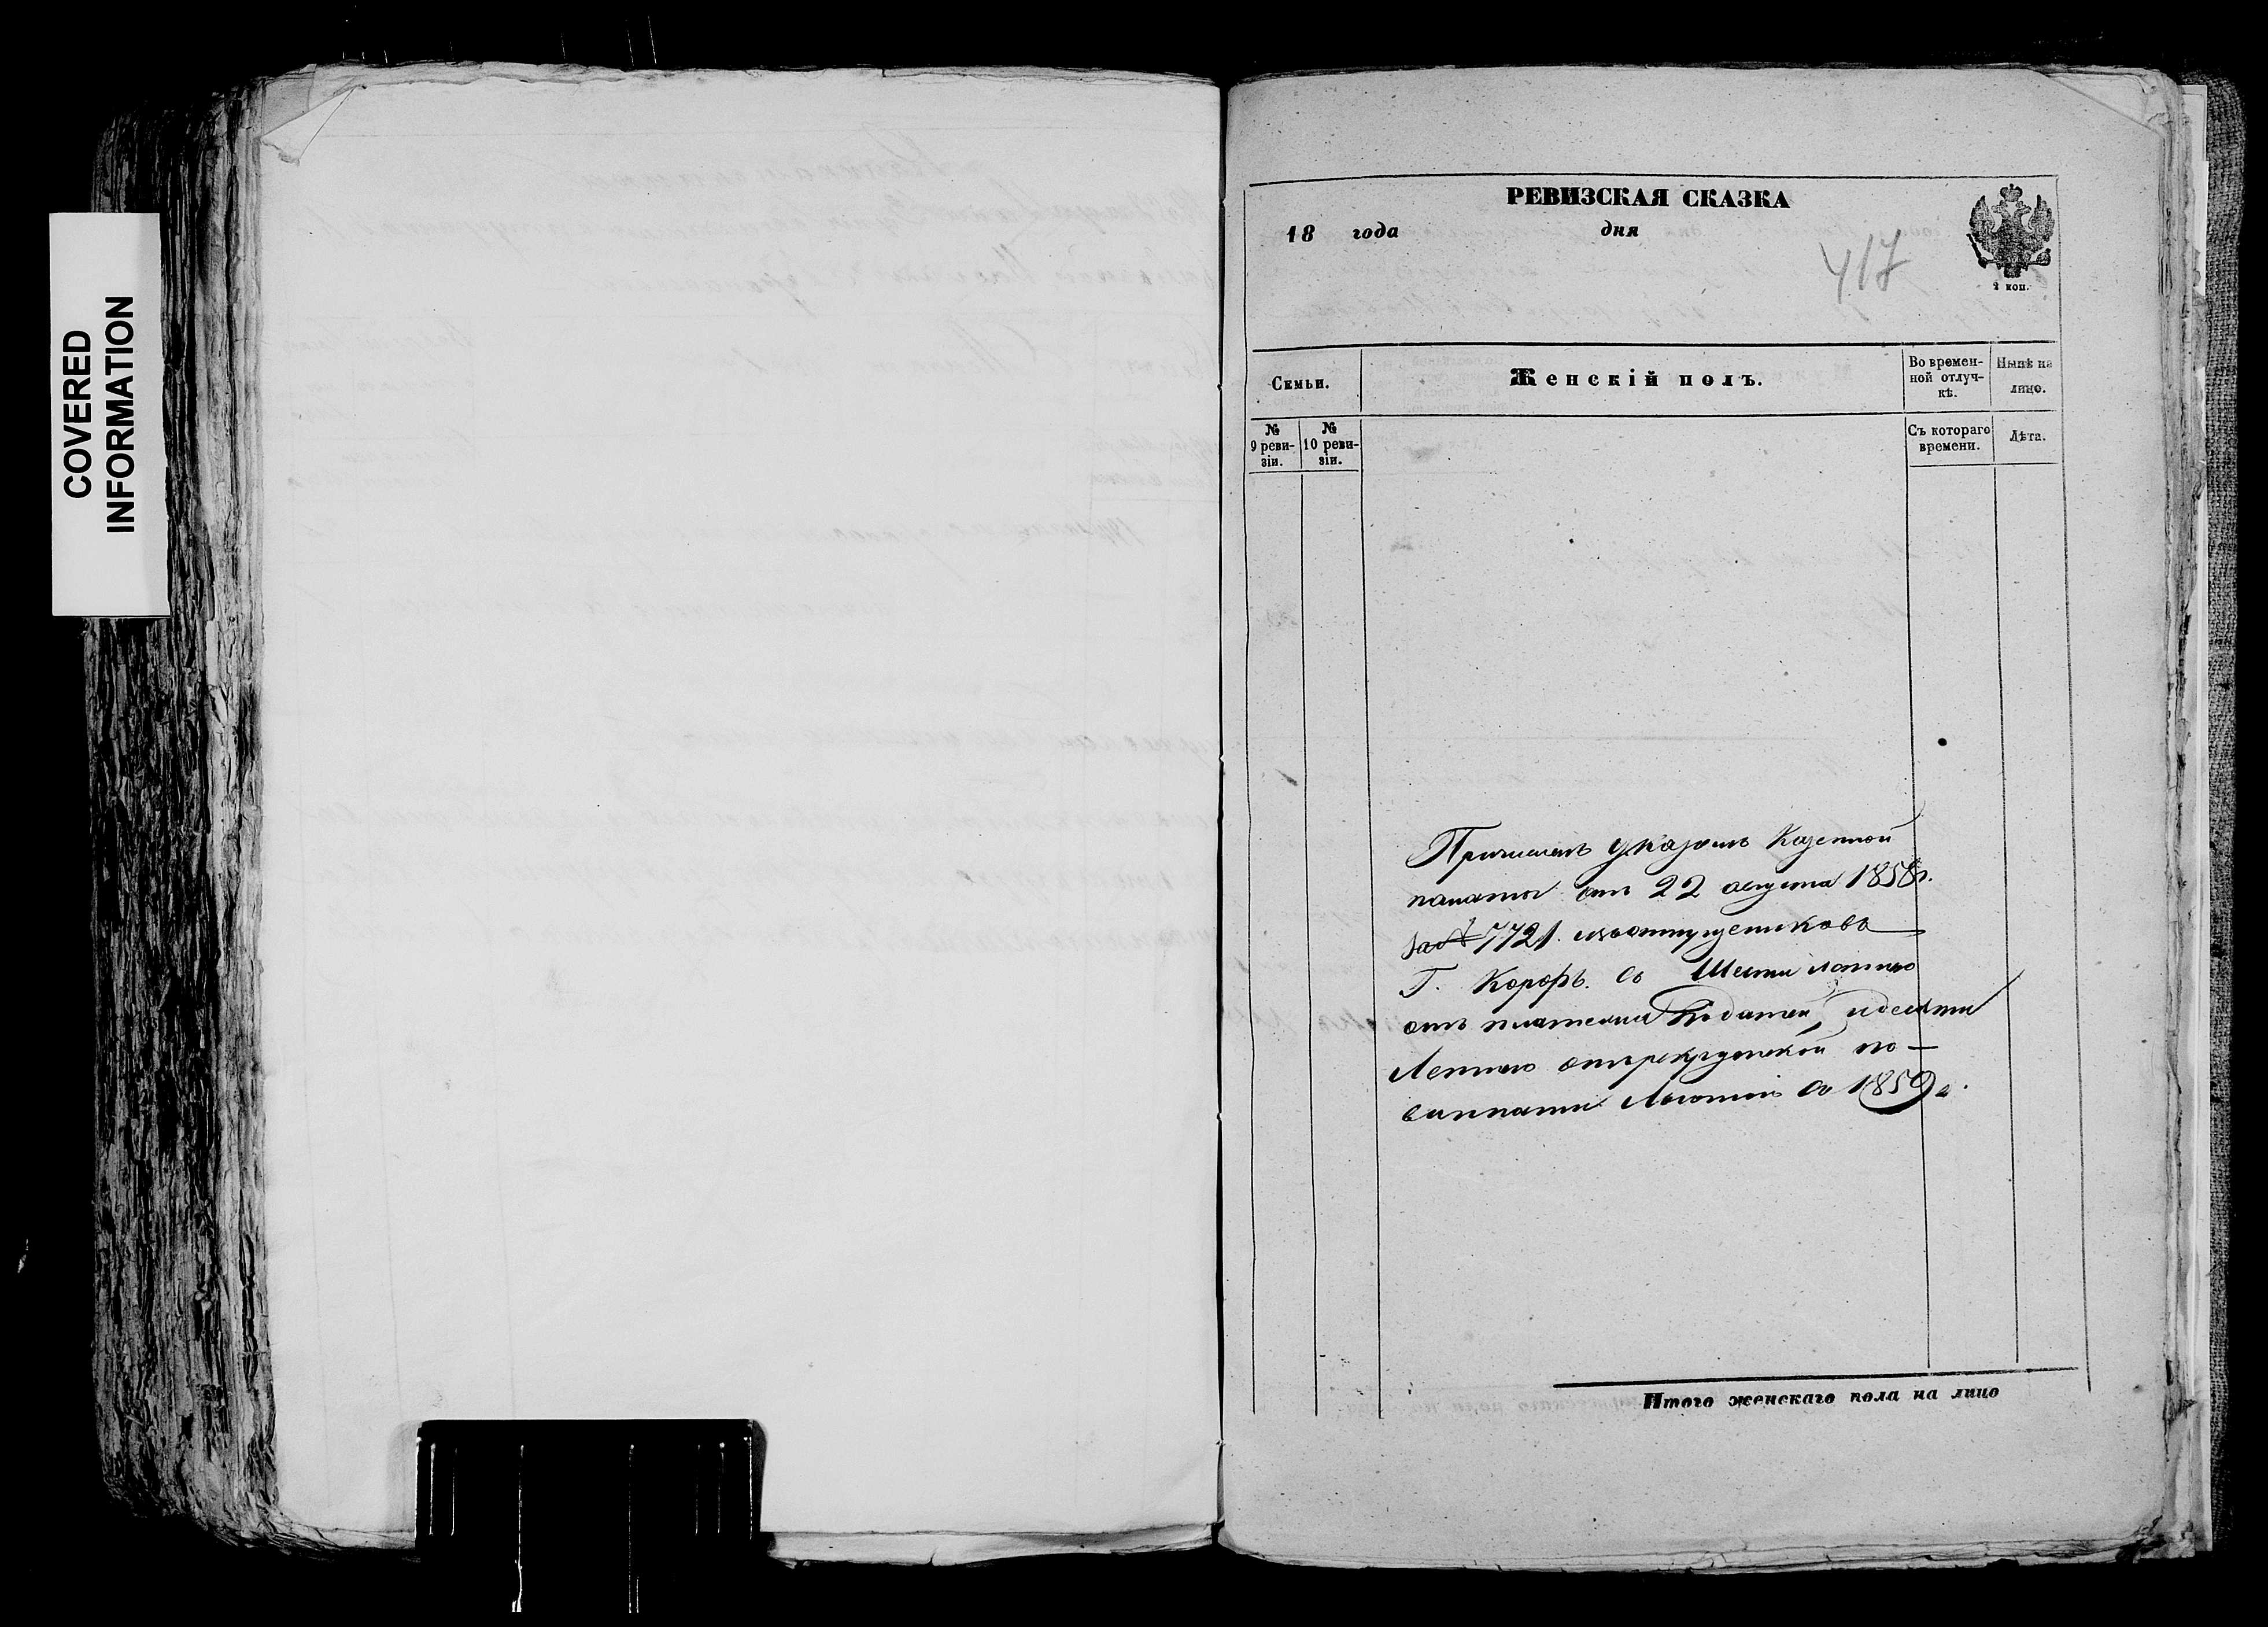 COVERED
INFORMATION
РЕВИЗСКАЯ СКАЗКА
18 года дня
417
2 коп.
Семьи.
Женскій полъ.
Во времен-
ной отлуч-
кѣ.
Нынѣ на
лицо.
№
9 реви-
зіи.
№
10 реви-
зіи.
Съ котораго
времени.
Лѣта.
Причисленъ указомъ Казенной
палаты отъ 22 августа 1858 г.
за № 7721. изъ отпущенниковъ
Г. Корфъ. съ Шести лѣтнею
отъ платежа Податей, и десяти
Летнею отъ рекрутской по-
винности Льготой съ 1859 г.
Итого женскаго пола на лицо